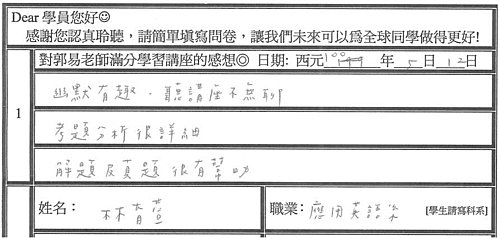 Dear 學員您好☺
感謝您認真聆聽，請簡單填寫問卷，讓我們未來可以為全球同學做得更好!
1
對郭易老師滿分學習講座的感想◎ 日期: 西元 年 5 月 12 日
幽默有趣，聽講座不無聊
考題分析很詳細
解題及真題很有幫助
姓名： 林青萱 職業： 應用英語系 [學生請寫科系]